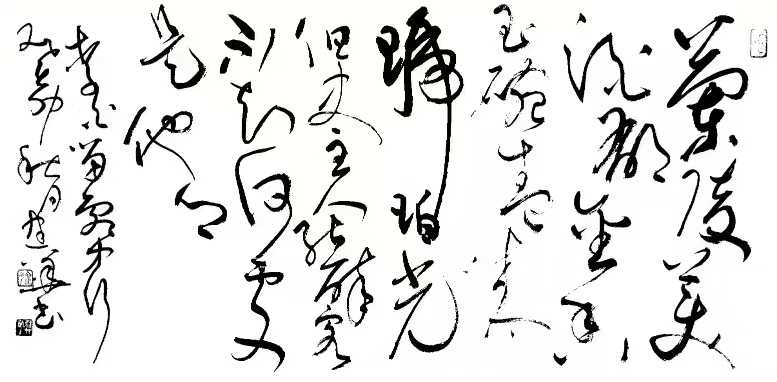 蘭陵美
酒郁金香
玉碗盛来
琥珀光
但使主人能醉客
不知何處
是他乡
李白客中行
秋月書